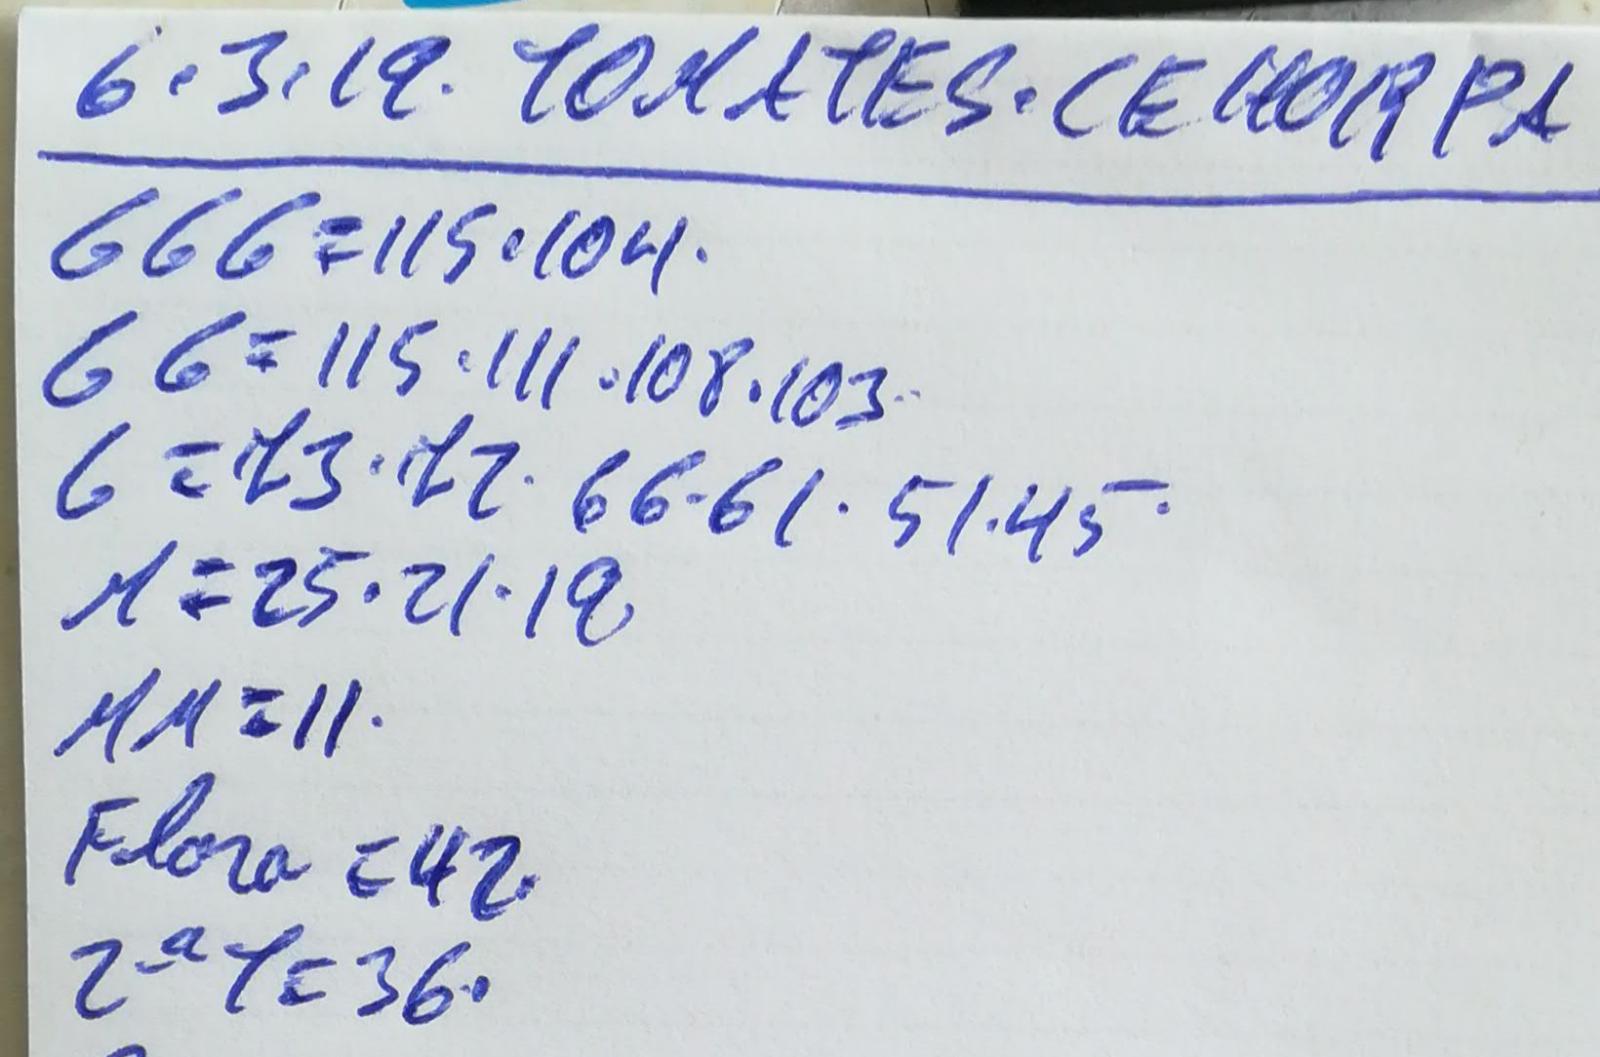 6.3.19. TOMATES. CEHORPA
GGG=115.104.
GG=115.111.108.103.
G=73.72.66.61.51.45.
M=25.21.19
MM=11.
Flora=42.
2ª T=36.